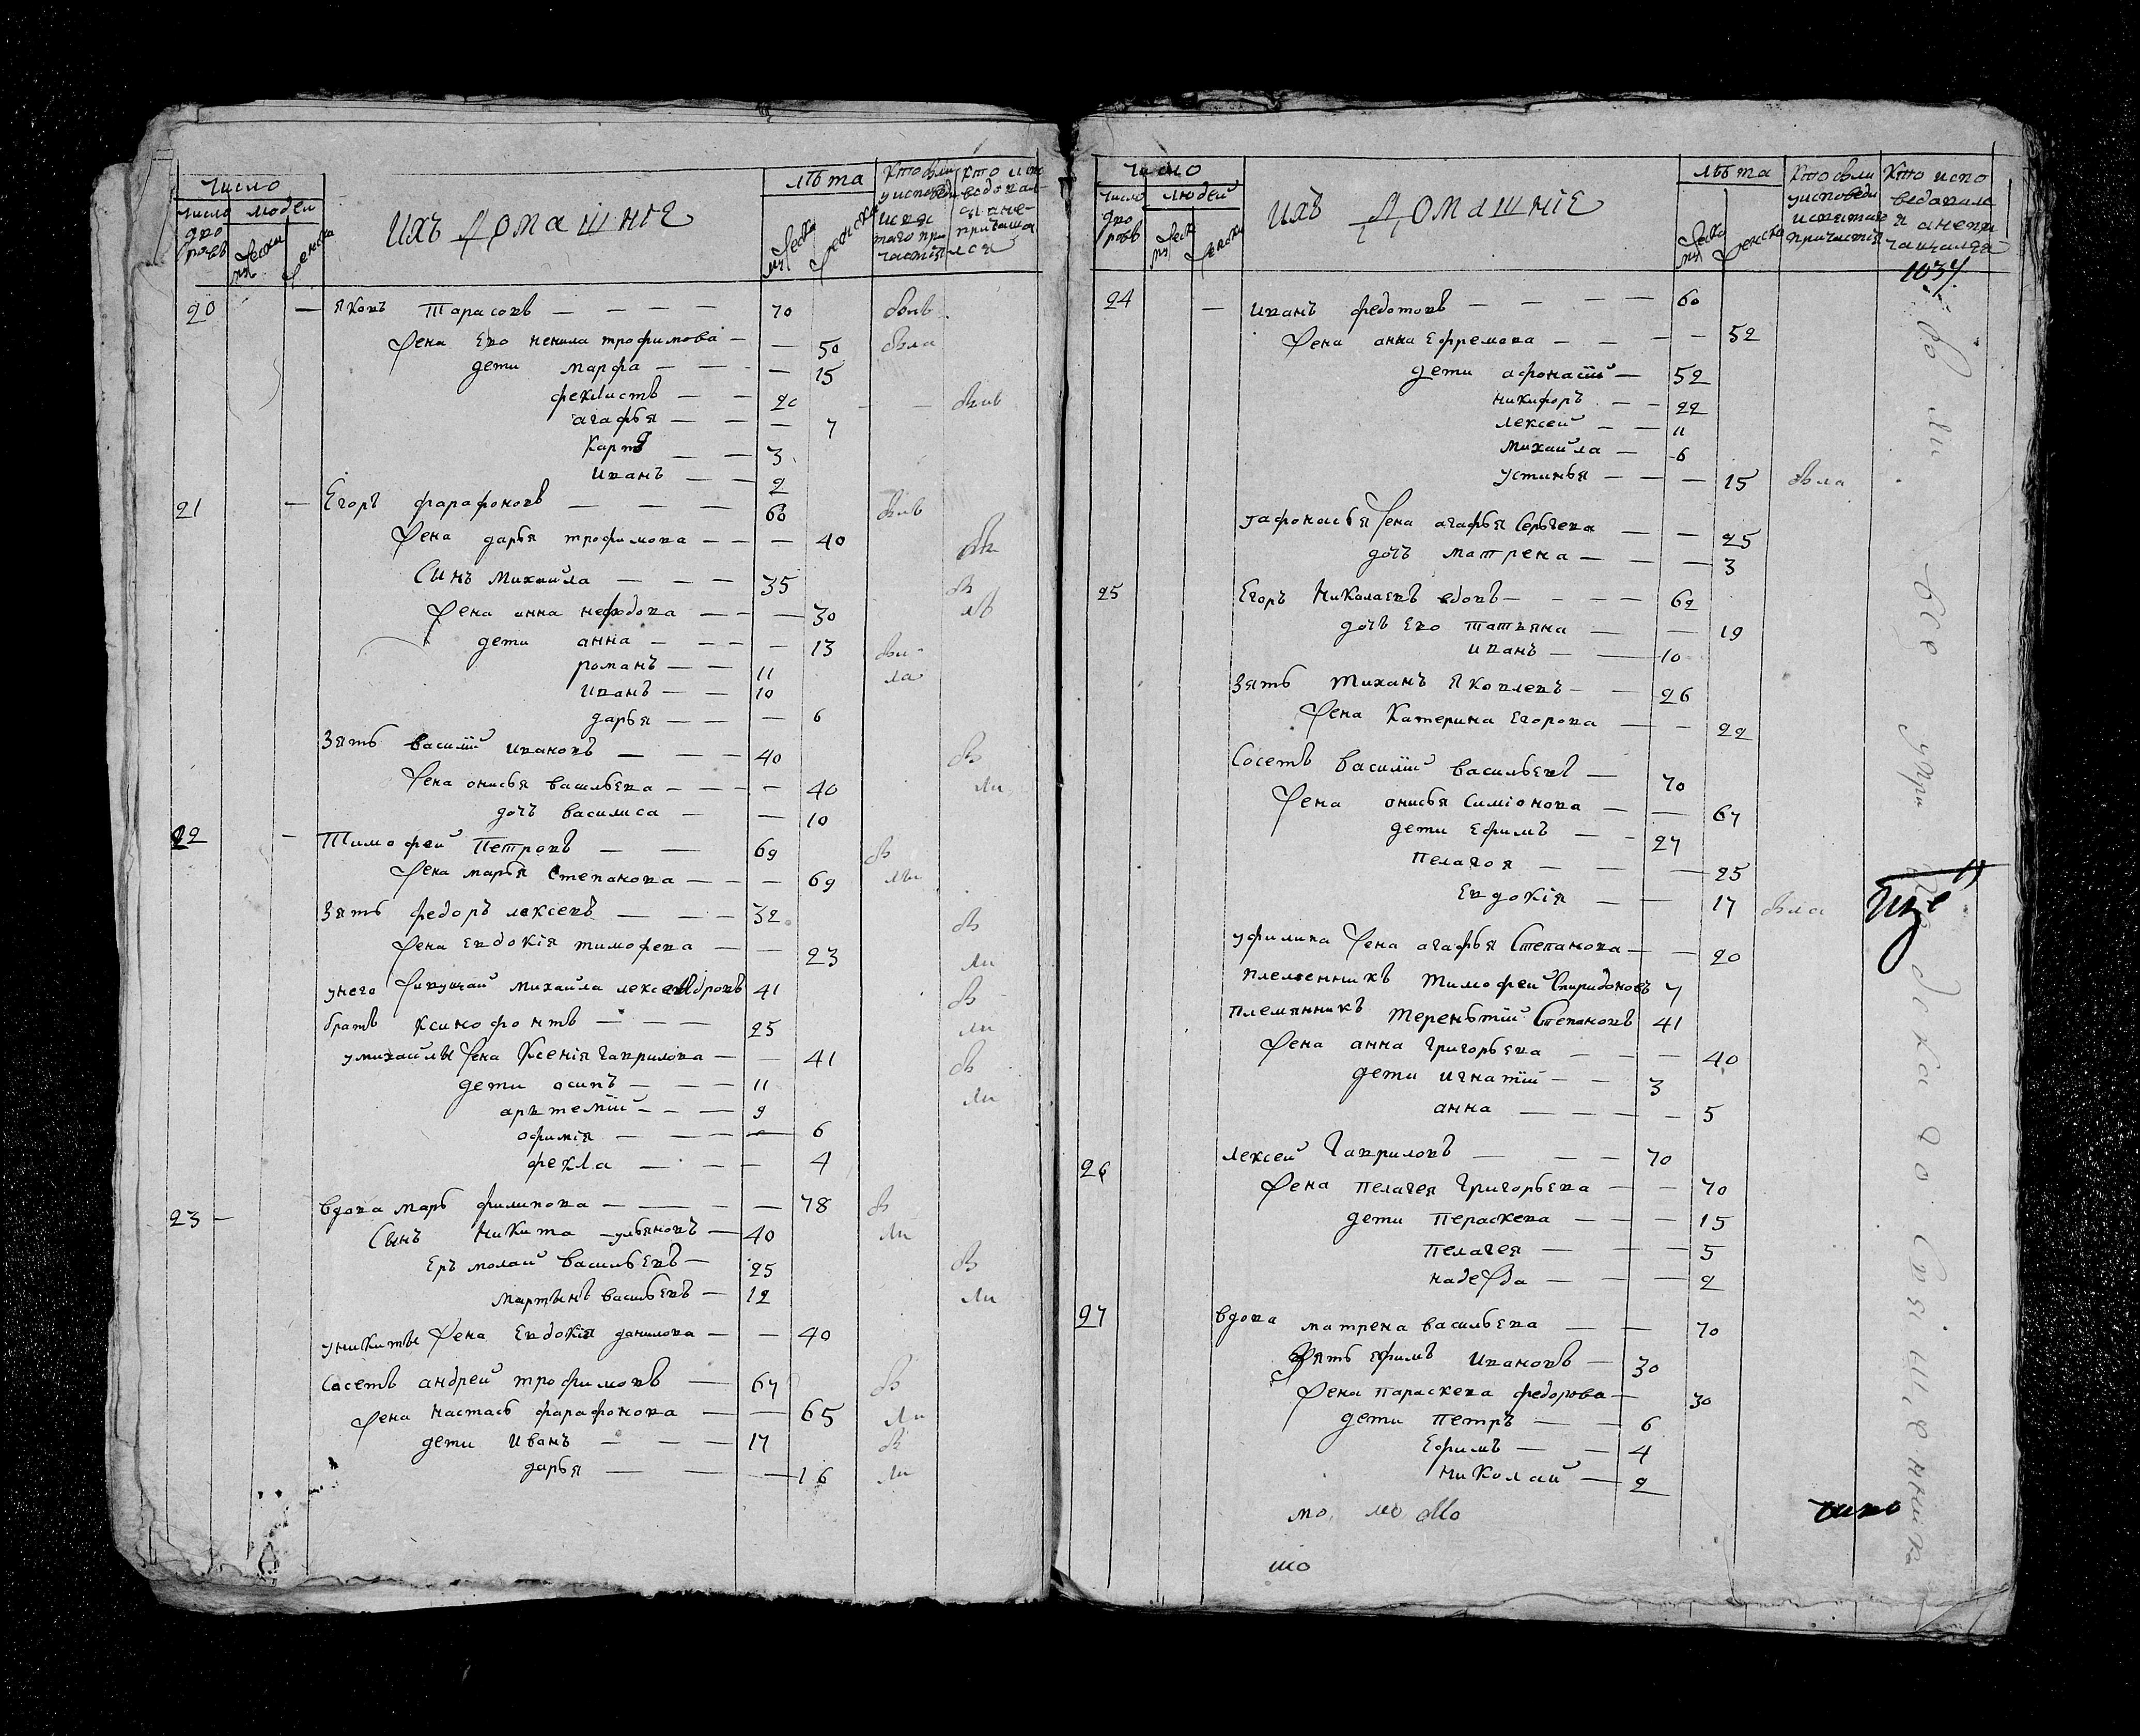 число
число дворовъ
людей
мужеска
женска
ихъ домашніе
лѣта
мужеска
женска
кто были у исповеди и святаго причастія
кто исповедовался а не причащался
20 — Яковъ Тарасовъ — — — — 70 былъ
жена ево ненила трофимова — — 50 была
дети марфа — — — — 15
феклистъ — — 20 — — былъ
агафья — — — 7
Карпъ — — 3
иванъ — — 2
21 — Егоръ фарафоновъ — — — 60 былъ
жена дарья трофимова — — — 40
Синъ михайла — — — 35
жена анна нефодова — — — 30
дети анна — — — — 13
романъ — — 11
иванъ — — 10
дарья — — — 6
Зять василій ивановъ — — — 40
жена онисья васильева — — — — 40
дочь василиса — — 10
22 — Тимофей Петровъ — — 69
жена марья степанова — — — 69
Зять федоръ лексеевъ — — — 32
жена евдокія тимофева — — 23
унего живущай михайла 41
братъ ксинофонтъ — — — 25
умихайлы жена Ксенія гаврилова — — 41
дети осипъ — — — 11
артемій — — — 9
офимія — — — — 6
фекла — — — 4
23 — вдова марь филипова — — — — 78
Сынъ никита ульяновъ — 40
ермолай васильевъ — 25
мартынъ васильевъ — 12
уникиты жена евдокія данилова — — 40
Сосетъ андрей трофимовъ — 67
жена настась фарафонова — — 65
дети иванъ — — — 17
дарья — — — 16
число
число дворовъ
людей
мужеска
женска
ихъ домашніе
лѣта
мужеска
женска
кто были у исповеди и святаго причастія
кто исповедовался а не причащался
1034
24 — иванъ федотовъ — — — — 60
жена анна ефремова — — — — 52
дети афонасій — 52
никифоръ — — 22
лексей — — 11
михайла — 6
устинья — — — 15 была
уафонасья жена агафья Сергева — — 25
дочь матрена — — — 3
25 Егоръ николаевъ вдовъ — — — — 62
дочь ево татьяна — — 19
иванъ — — 10
Зять тиханъ яковлевъ — — 26
жена Катерина егорова — — 22
Сосетъ василій васильевъ — 70
жена онисья симіонова — — 67
дети ефимъ — — 27
пелагоя — — — 25
евдокія — — 17 была
жена агафья степанова — — 20
племенникъ тимофей спиридоновъ 7
племянникъ терентій степановъ 41
жена анна григорьева — — — 40
дети игнатій — — 3
анна — — — — 5
26 лексей гавриловъ — — — 70
жена пелагея григорьева — — 70
дети пераскева — — — 15
пелагея — — — 5
надежда — — — 2
27 вдова матрена васильева — — 70
Зять ефимъ ивановъ — 30
жена параскева федорова — 30
дети петръ — — 6
ефимъ — — 4
николай — 2
мо мо Мо
шо